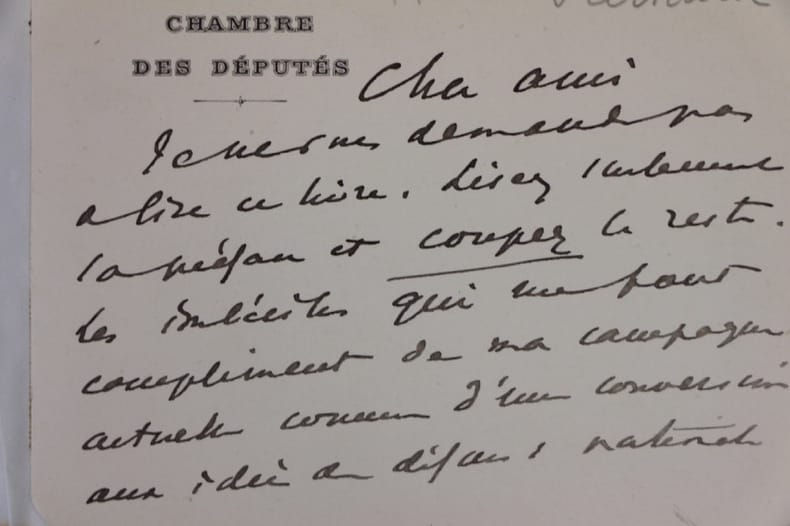 CHAMBRE
DES DÉPUTÉS
Cher ami
Je ne vous demande pas
a lire ce livre. Lisez seulement
la préface et coupez le reste.
Les imbéciles qui me font
compliment de ma campagne
actuelle comme d'une conversion
aux idées de défense nationale